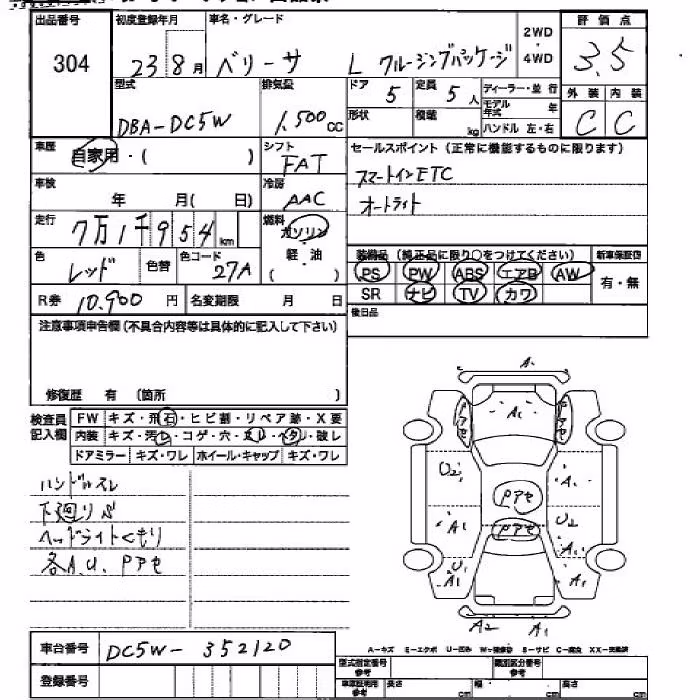 出品番号 初度登録年月 車名・グレード 2WD・4WD 評価点
304 23 8月 ベリーサ L クルージングパッケージ 3.5
型式 排気量 ドア 定員 ディーラー・並行 外装 内装
DBA-DC5W 1,500cc 5 5人 モデル年式 年 C C
形状 積載 kg ハンドル 左・右
車歴 自家用・( ) シフト FAT セールスポイント (正常に機能するものに限ります)
車検 年 月( 日) 冷房 AAC スマートインETC
オートライト
走行 7万1千954km 燃料 ガソリン 軽・油 ( )
色 レッド 色替 色コード 27A
装備品 (純正品に限り○をつけてください) 新車保証書
PS PW ABS エアB AW 有・無
SR ナビ TV カワ
R券 10,900円 名変期限 月 日
後日品
注意事項申告欄(不具合内容等は具体的に記入して下さい)
修復歴 有 (箇所 )
検査員記入欄 FW キズ・飛石・ヒビ割・リペア跡・X要
内装 キズ・汚レ・コゲ・穴・スレ・ヘタリ・破レ
ドアミラー キズ・ワレ ホイール・キャップ キズ・ワレ
ハンドルスレ
下廻りS
ヘッドライトくもり
各A.U. Pアセ
A
A1
Pアセ Pアセ
U2 Pアセ A1
A1 Pアセ U2
A1
U A1 A1
A2 A1
車台番号 DC5W-352120
登録番号
A-キズ E-エクボ U-凹み W-補修跡 S-サビ C-腐食 XX-交換済
型式指定番号 参考 類別区分番号 参考
車庫証明用 参考 長さ cm 幅 cm 高さ cm